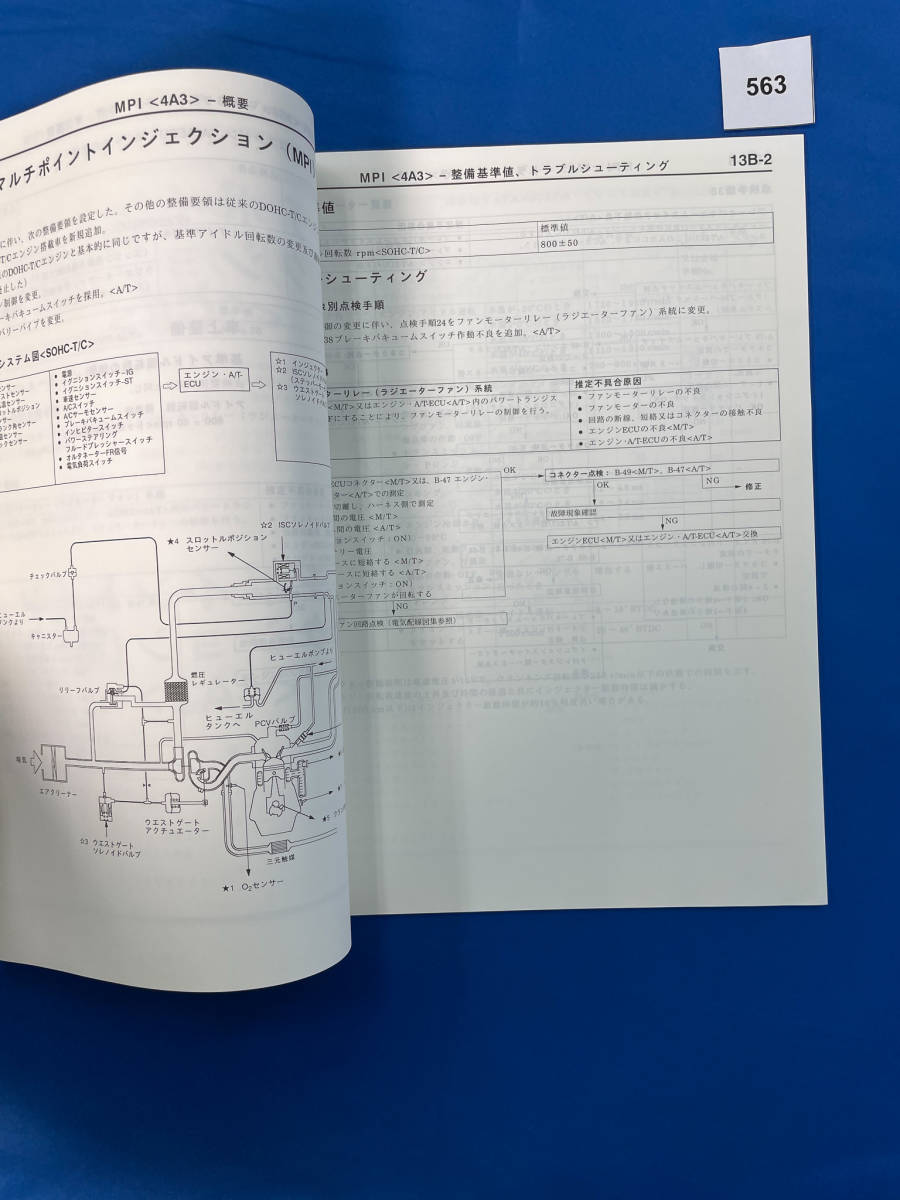 563
MPI <4A3> − 概要
マルチポイントインジェクション（MPI
に伴い、次の整備要領を設定した。その他の整備要領は従来のDOHC-T/Cエンジン
T/Cエンジン搭載車を新規追加。
のDOHC-T/Cエンジンと基本的に同じですが、基準アイドル回転数の変更及び
廃止した）
ン制御を変更。
ーキバキュームスイッチを採用。<A/T>
バリーパイプを変更。
システム図<SOHC-T/C>
● 電源
● イグニションスイッチ-IG
● イグニションスイッチ-ST
● 車速センサー
● A/Cスイッチ
● A/Cサーモセンサー
● ブレーキバキュームスイッチ
● インヒビタースイッチ
● パワーステアリング
フルードプレッシャースイッチ
● オルタネーターFR信号
● 電気負荷スイッチ
エンジン・A/T-
ECU
☆1 インジェクター
☆2 ISCソレノイド
（ステッパーモー
☆3 ウエストゲート
ソレノイドバル
☆2 ISCソレノイドバルブ
★4 スロットルポジション
センサー
チェックバルブ
ヒューエル
タンクより
キャニスター
リリーフバルブ
燃圧
レギュレーター
ヒューエルポンプより
ヒューエル
タンクへ
PCVバルブ
吸気
エアクリーナー
ウエストゲート
アクチュエーター
☆3 ウエストゲート
ソレノイドバルブ
★5 クラン
三元触媒
★1 O2センサー
MPI <4A3> − 整備基準値、トラブルシューティング
13B-2
準値
標準値
ル回転数 rpm<SOHC-T/C>
800±50
シューティング
象別点検手順
御の変更に伴い、点検手順24をファンモーターリレー（ラジエーターファン）系統に変更。
38ブレーキバキュームスイッチ作動不良を追加。<A/T>
ーターリレー（ラジエーターファン）系統
推定不具合原因
<M/T>又はエンジン・A/T-ECU<A/T>内のパワートランジス
Fにすることにより、ファンモーターリレーの制御を行う。
● ファンモーターリレーの不良
● ファンモーターの不良
● 回路の断線、短絡又はコネクターの接触不良
● エンジンECUの不良<M/T>
● エンジン・A/T-ECUの不良<A/T>
ECUコネクター<M/T>又は、B-47 エンジン・
ター<A/T>での測定
切離し、ハーネス側で測定
間の電圧 <M/T>
間の電圧 <A/T>
ョンスイッチ：ON）
テリー電圧
ースに短絡する <M/T>
ースに短絡する <A/T>
ョンスイッチ：ON）
エーターファンが回転する
OK
コネクター点検：B-49<M/T>、B-47<A/T>
NG
修正
OK
故障現象確認
NG
エンジンECU<M/T>又はエンジン・A/T-ECU<A/T>交換
NG
ァン回路点検（電気配線図集参照）